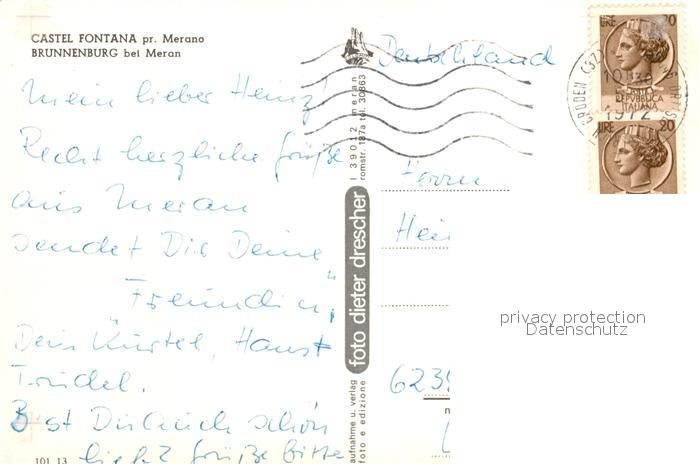 CASTEL FONTANA pr. Merano
BRUNNENBURG bei Meran
Mein lieber Heinz!
Recht herzliche Grüße
aus Meran
sendet Dir Deine
"Freundin",
Dein Kürtel, Hans
Trudel.
Bist Du auch schön
lieb? Grüße bitte
101 13
I 39012 meran
romstr. 187a tel. 30863
foto dieter drescher
aufnahme u. verlag
foto e edizione
Deutschland
LIRE 20
POSTE
REPVBBLICA
ITALIANA
1972
LIRE 20
Herrn
Hei
623
privacy protection
Datenschutz